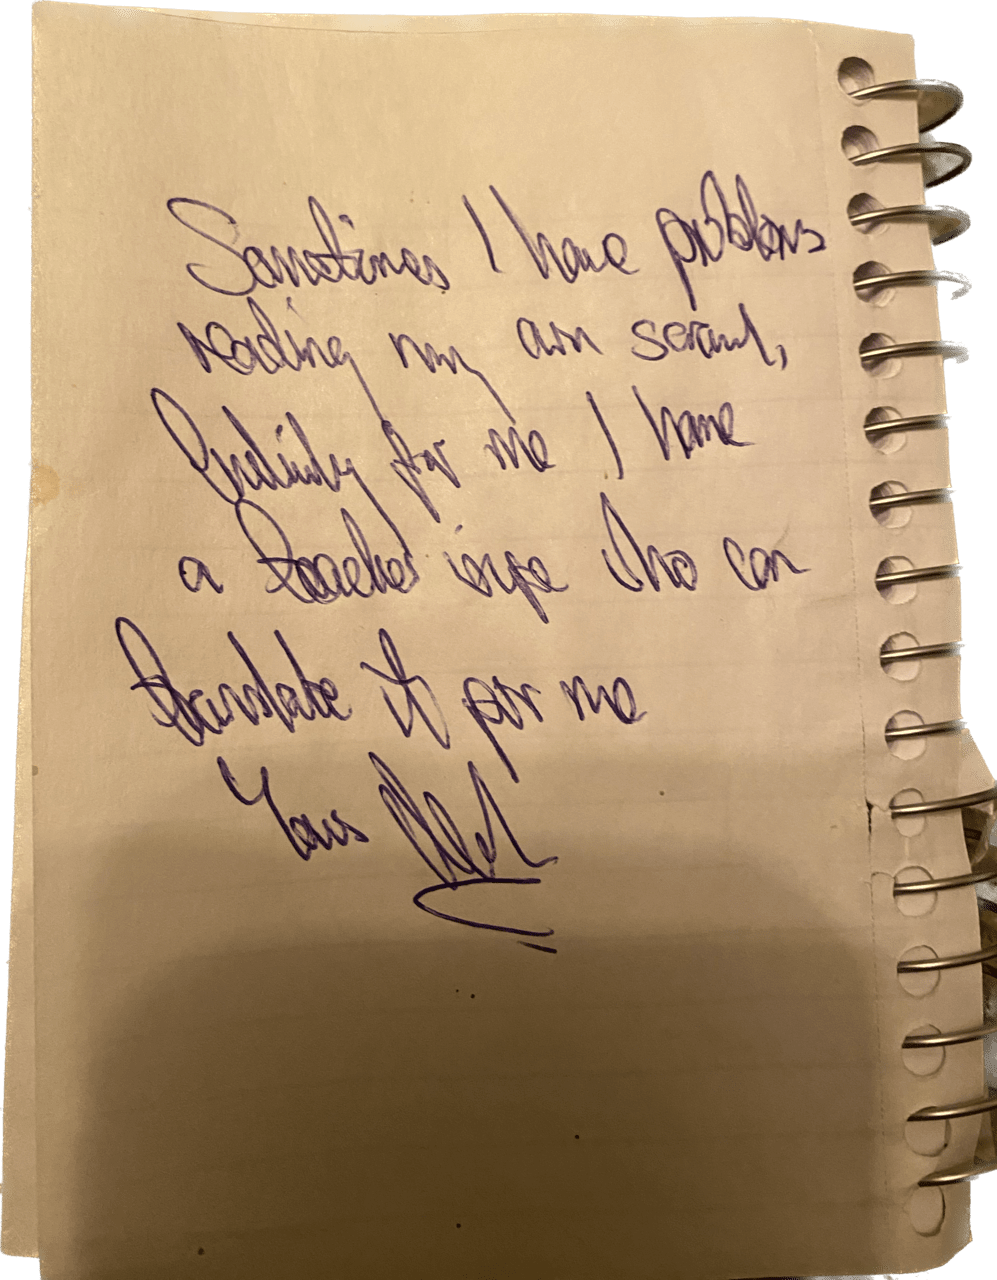 Sometimes I have problems
reading my own scrawl,
luckily for me I have
a teacher wife who can
translate it for me
Yours